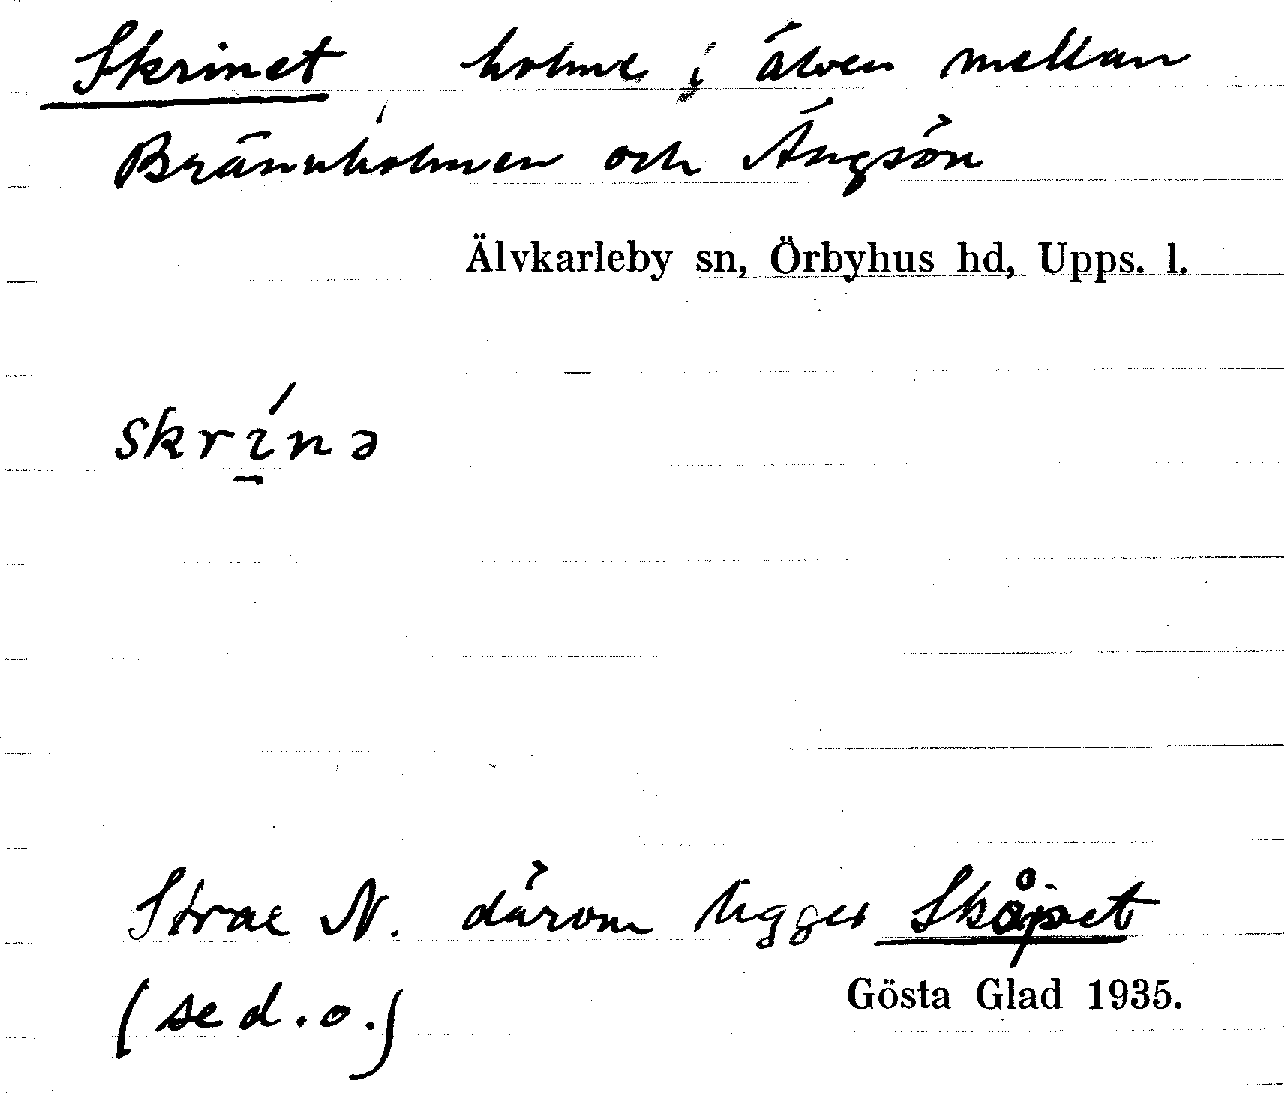 Skrinet holme i älven mellan
Brännholmen och Ängsön
Älvkarleby sn, Örbyhus hd, Upps. l.
skrí̱nə
Strax N. därom ligger Skåpet
(se d. o.)
Gösta Glad 1935.